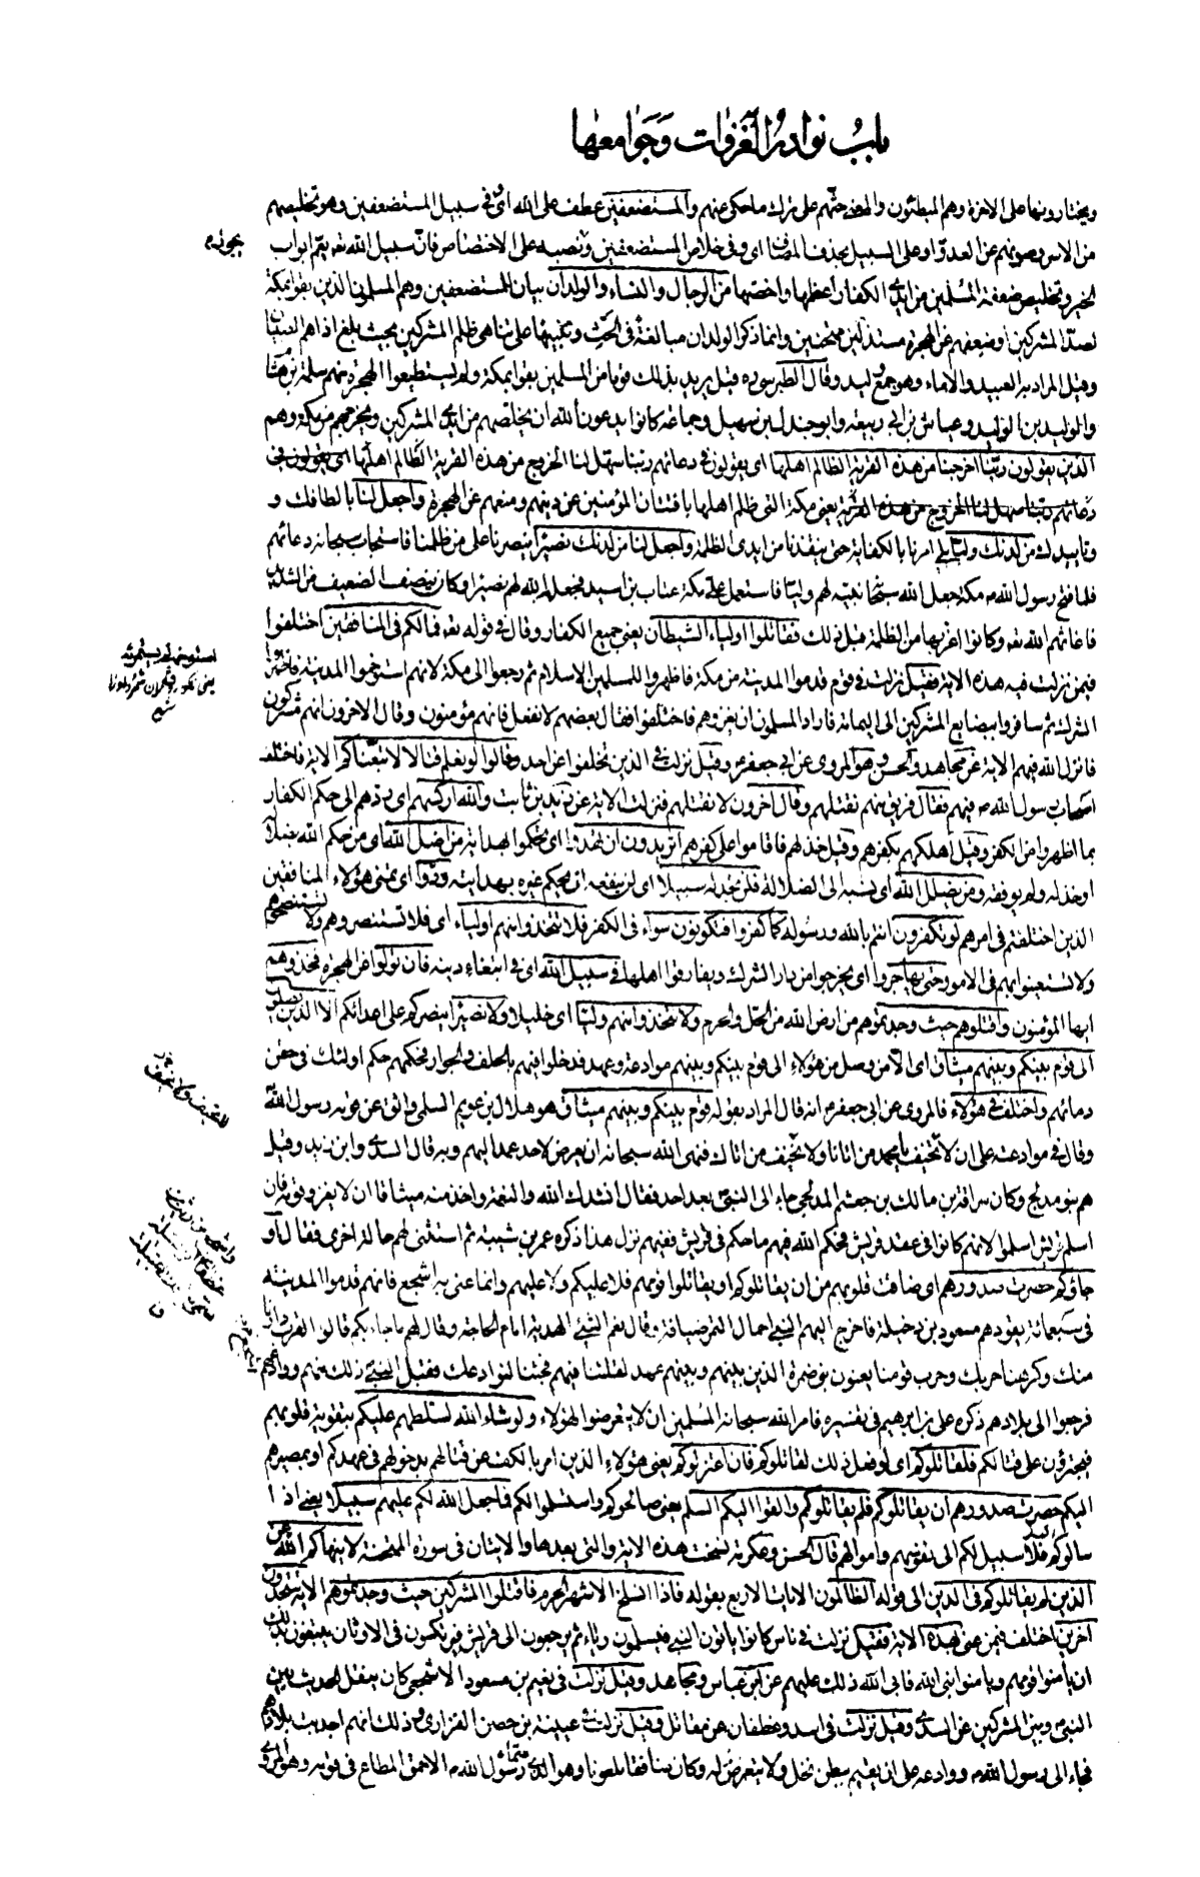 باب نوادر الغزوات وجوامعها
ويختارونها على الآخرة وهم المبطئون والمعنى حثّهم على ترك ما حكى عنهم والمستضعفين عطف على الله اى وفى سبيل المستضعفين وهو تخليصهم
من الاسر وصونهم عن العدوّ او على السبيل بحذف المضاف اى وفى خلاص المستضعفين ونصبه على الاختصاص فانّ سبيل الله تع يعمّ ابواب
الخير وتخليص ضعفة المسلمين من ايدى الكفار اعظمها واخصّها من الرجال والنساء والولدان بيان للمستضعفين وهم المسلمون الذين بقوا بمكة
لصدّ المشركين او ضعفهم عن الهجرة مستذلّين ممتحنين وانما ذكر الولدان مبالغة فى الحثّ وتنبيها على تناهى ظلم المشركين بحيث بلغ اذاهم الصبيان
وقيل المراد به العبيد والاماء وهو جمع وليد وقال الطبرسى ره قيل يريد بذلك قوما من المسلمين بقوا بمكة ولم يستطيعوا الهجرة منهم سلمة بن هشام
والوليد بن الوليد وعياش بن ابى ربيعة وابو جندل بن سهيل وجماعة كانوا يدعون الله ان يخلّصهم من ايدى المشركين ويخرجهم من مكة وهم
الذين يقولون ربّنا اخرجنا من هذه القرية الظالم اهلها اى يقولون فى دعائهم ربنا سهّل لنا الخروج من هذه القرية الظالم اهلها اى يقولون فى
دعائهم ربّنا سهل لنا الخروج من هذه القرية يعنى مكة التى ظلم اهلها بافتتان المؤمنين عن دينهم ومنعهم عن الهجرة واجعل لنا بالطافك و
تاييدك من لدنك وليّا يلى امرنا بالكفاية حتى ينقذنا من ايدى الظلمة واجعل لنا من لدنك نصيرا ينصرنا على من ظلمنا فاستجاب سبحانه دعائهم
فلما فتح رسول الله ص مكة جعل الله سبحانه نبيّه لهم وليّا فاستعمل على مكة عتاب بن اسيد فجعله الله لهم نصيرا وكان ينصف الضعيف من الشديد
فاغاثهم الله تع وكانوا اعزّ بها من الظلمة قبل ذلك فقاتلوا اولياء الشيطان يعنى جميع الكفار وقال فى قوله تع فما لكم فى المنافقين اختلفوا
فيمن نزلت فيه هذه الاية فقيل نزلت فى قوم قدموا المدينة من مكة فاظهروا للمسلمين الاسلام ثم رجعوا الى مكة لانهم استوخموا المدينة فاظهروا
الشرك ثم سافروا ببضايع المشركين الى اليمامة فاراد المسلمون ان يغزوهم فاختلفوا فقال بعضهم لا نفعل فانهم مؤمنون وقال الآخرون انهم مشركون
فانزل الله فيهم الاية عن مجاهد والحسن وهو المروى عن ابى جعفر ع وقيل نزلت فى الذين تخلفوا عن احد وقالوا لو نعلم قتالا لاتّبعناكم الاية فاختلف
اصحاب رسول الله ص فيهم فقال فريق منهم نقتلهم وقال آخرون لا نقتلهم فنزلت الاية عن زيد بن ثابت والله اركسهم اى ردّهم الى حكم الكفار
بما اظهروا من الكفر وقيل اهلكهم بكفرهم وقيل خذلهم فاقاموا على كفرهم اتريدون ان تهدوا اى تحكموا بهداية من اضل الله اى من حكم الله بضلاله
او خذله ولم يوفقه ومن يضلل الله اى نسبه الى الضلالة فلن تجد له سبيلا اى لن ينفعه ان يحكم غيره بهدايته ودّوا اى تمنى هؤلاء المنافقين
الذين اختلفتم فى امرهم لو تكفرون انتم بالله ورسوله كما كفروا فتكونون سواء فى الكفر فلا تتخذوا منهم اولياء اى فلا تستنصروهم ولا تستنصحوهم
ولا تستعينوا بهم فى الامور حتى يهاجروا اى يخرجوا من دار الشرك ويفارقوا اهلها فى سبيل الله اى فى ابتغاء دينه فان تولّوا عن الهجرة فخذوهم
ايها المؤمنون واقتلوهم حيث وجدتموهم من ارض الله من الحلّ والحرم ولا تتخذوا منهم وليّا اى خليلا ولا نصيرا ينصركم على اعدائكم الا الذين يصلون
الى قوم بينكم وبينهم ميثاق اى الّا من وصل من هؤلاء الى قوم بينكم وبينهم موادعة وعهد فدخلوا فيهم بالحلف والجوار فحكمهم حكم اولئك فى حقن
دمائهم واختلف فى هؤلاء فالمروى عن ابى جعفر ع انه قال المراد بقوله قوم بينكم وبينهم ميثاق هو هلال بن عويم السلمى واثق عن قومه رسول الله ص
وقال فى موادعته على ان لا تحيف يا محمد من اتانا ولا نحيف من اتاك فنهى الله سبحانه ان يعرض لاحد عهد اليهم وبه قال السدى وابن زيد وقيل
هم بنو مدلج وكان سراقة بن مالك بن جعشم المدلجى جاء الى النبى ص بعد احد فقال انشدك الله والنعمة واخذ منه ميثاقا ان لا يغزو قومه فان
اسلم قريش اسلموا لانهم كانوا فى عقد قريش فحكم الله فيهم ما حكم فى قريش ففيهم نزل هذا ذكره عمر بن شيبة ثم استثنى لهم حالة اخرى فقال او
جاؤكم حصرت صدورهم اى ضاقت قلوبهم من ان يقاتلوكم او يقاتلوا قومهم فلا عليكم ولا عليهم وانما عنى به اشجع فانهم قدموا المدينة
فى سبعمائة يقودهم مسعود بن دخيلة فاخرج اليهم النبى ص احمال التمر ضيافة وقال نعم الشئ الهدية امام الحاجة وقال لهم ما جاء بكم قالوا لقرب دارنا
منك وكرهنا حربك وحرب قومنا يعنون بنى ضمرة الذين بينهم وبينهم عهد لقلتنا فيهم فجئنا لنوادعك فقبل النبى ص ذلك منهم ووادعهم
فرجعوا الى بلادهم ذكره على بن ابرهيم فى تفسيره فامر الله سبحانه المسلمين ان لا يتعرضوا لهؤلاء ولو شاء الله لسلّطهم عليكم بتقوية قلوبهم
فيجترؤن على قتالكم فلقاتلوكم اى لو فعل ذلك لقاتلوكم فان اعتزلوكم يعنى هؤلاء الذين امر بالكف عن قتالهم بدخولهم فى عهدكم او بمصيرهم
اليكم حصرت صدورهم ان يقاتلوكم فلم يقاتلوكم والقوا اليكم السلم يعنى صالحوكم واستسلموا لكم فما جعل الله لكم عليهم سبيلا يعنى اذا
سالموكم فلا سبيل لكم الى نفوسهم واموالهم قال الحسن وعكرمة نسخت هذه الاية والتى بعدها والايتان فى سورة الممتحنة لا ينهاكم الله عن
الذين لم يقاتلوكم فى الدين الى قوله الظالمون الايات الاربع بقوله فاذا انسلخ الاشهر الحرم فاقتلوا المشركين حيث وجدتموهم الاية ستجدون
آخرين اختلف فيمن عنى بهذه الاية فقيل نزلت فى ناس كانوا ياتون النبى ص فيسلمون رياء ثم يرجعون الى قريش فيرتكسون فى الاوثان يبتغون بذلك
ان يامنوا قومهم ويامنوا نبى الله فابى الله ذلك عليهم عن ابن عباس ومجاهد وقيل نزلت فى نعيم بن مسعود الاشجعى كان ينقل الحديث بين
النبى ص وبين المشركين عن السدى وقيل نزلت فى اسد وغطفان عن مقاتل وقيل نزلت فى عيينة بن حصن الفزارى وذلك انهم اجدبت بلادهم
فجاء الى رسول الله ص ووادعه على ان يقيم ببطن نخل ولا يتعرض له وكان منافقا ملعونا وهو الذى سمّاه رسول الله ص الاحمق المطاع فى قومه وهو المروى